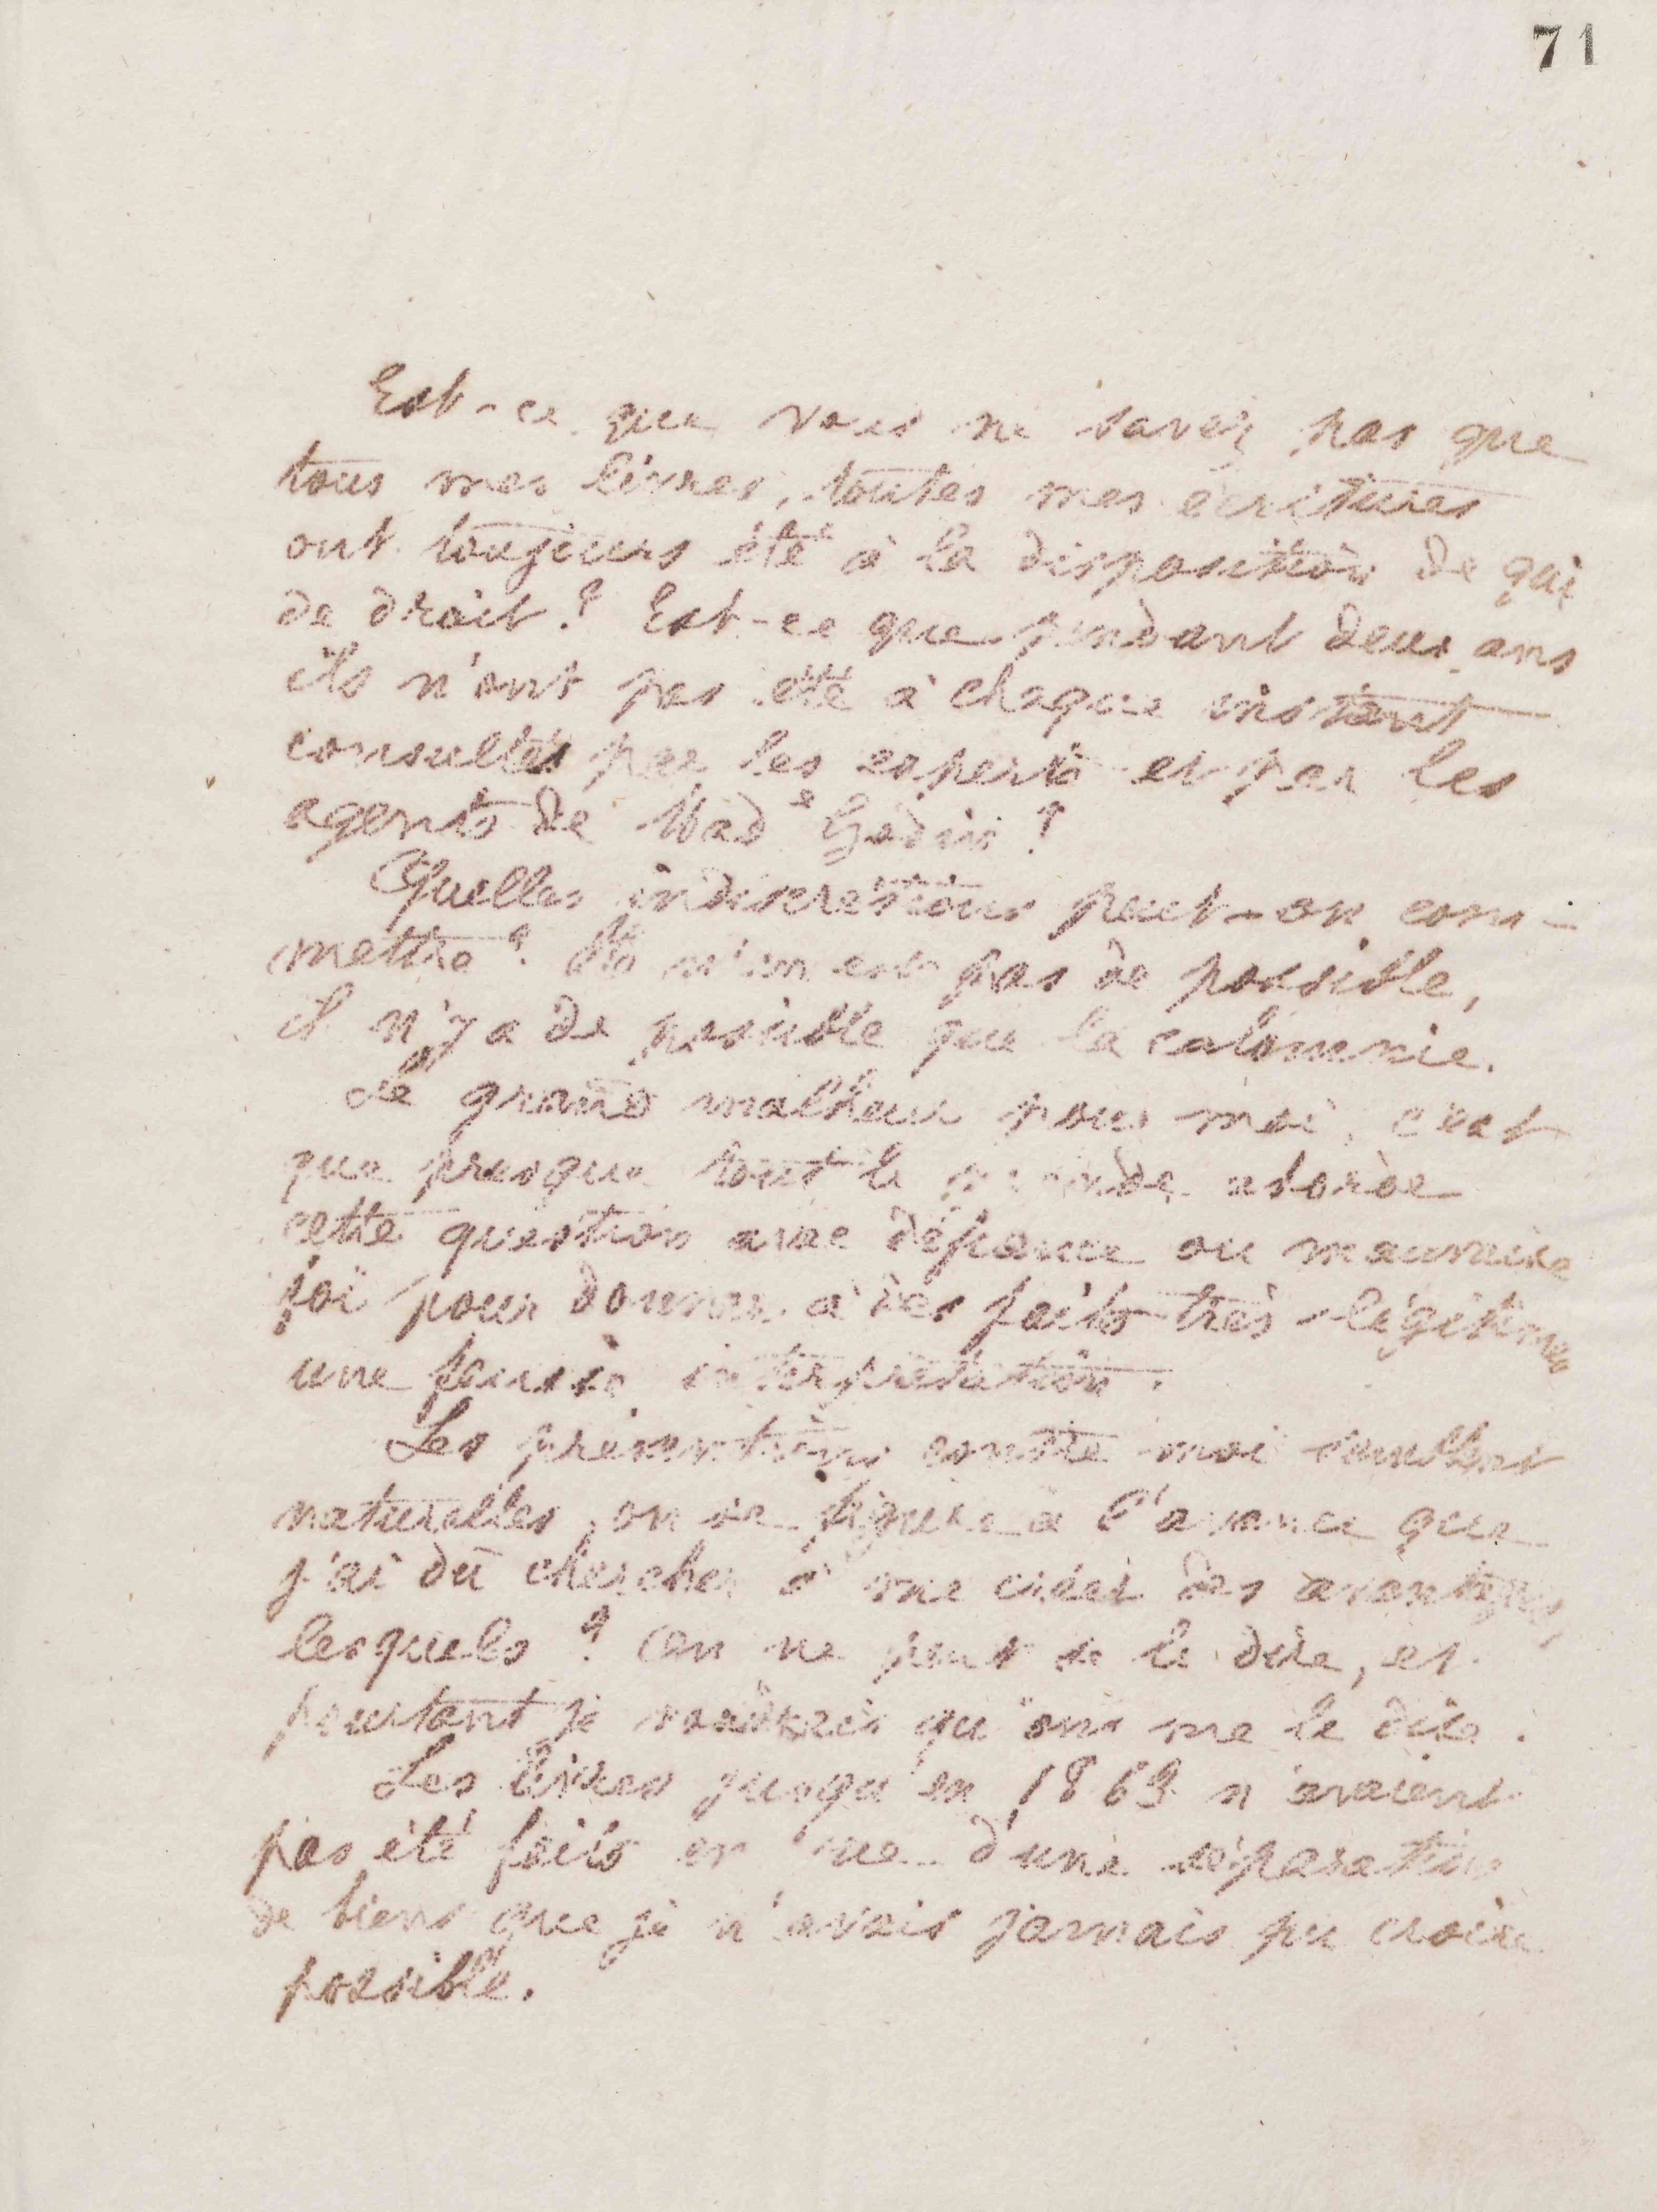 71
Est-ce que vous ne savez pas que
tous mes livres, toutes mes écritures
ont toujours été à la disposition de qui
de droit ? Est-ce que pendant deux ans
ils n'ont pas été à chaque instant
consultés par les experts et par les
agents de Mad^e Godin ?
Quelles indiscrétions peut-on com-
mettre ? Il n'en est pas de possible,
il n'y a de possible que la calomnie.
Le grand malheur pour moi, c'est
que presque tout le monde aborde
cette question avec défiance ou mauvaise
foi pour donner à des faits très légitimes
une fausse interprétation.
Les préventions contre moi semblent
naturelles, on se figure à l'avance que
j'ai dû chercher à me créer des avantages,
lesquels ? On ne peut se le dire, et
pourtant je voudrais qu'on me le dise.
Les livres jusqu'en 1863 n'avaient
pas été faits en vue d'une séparation
de biens que je n'avais jamais pu croire
possible.